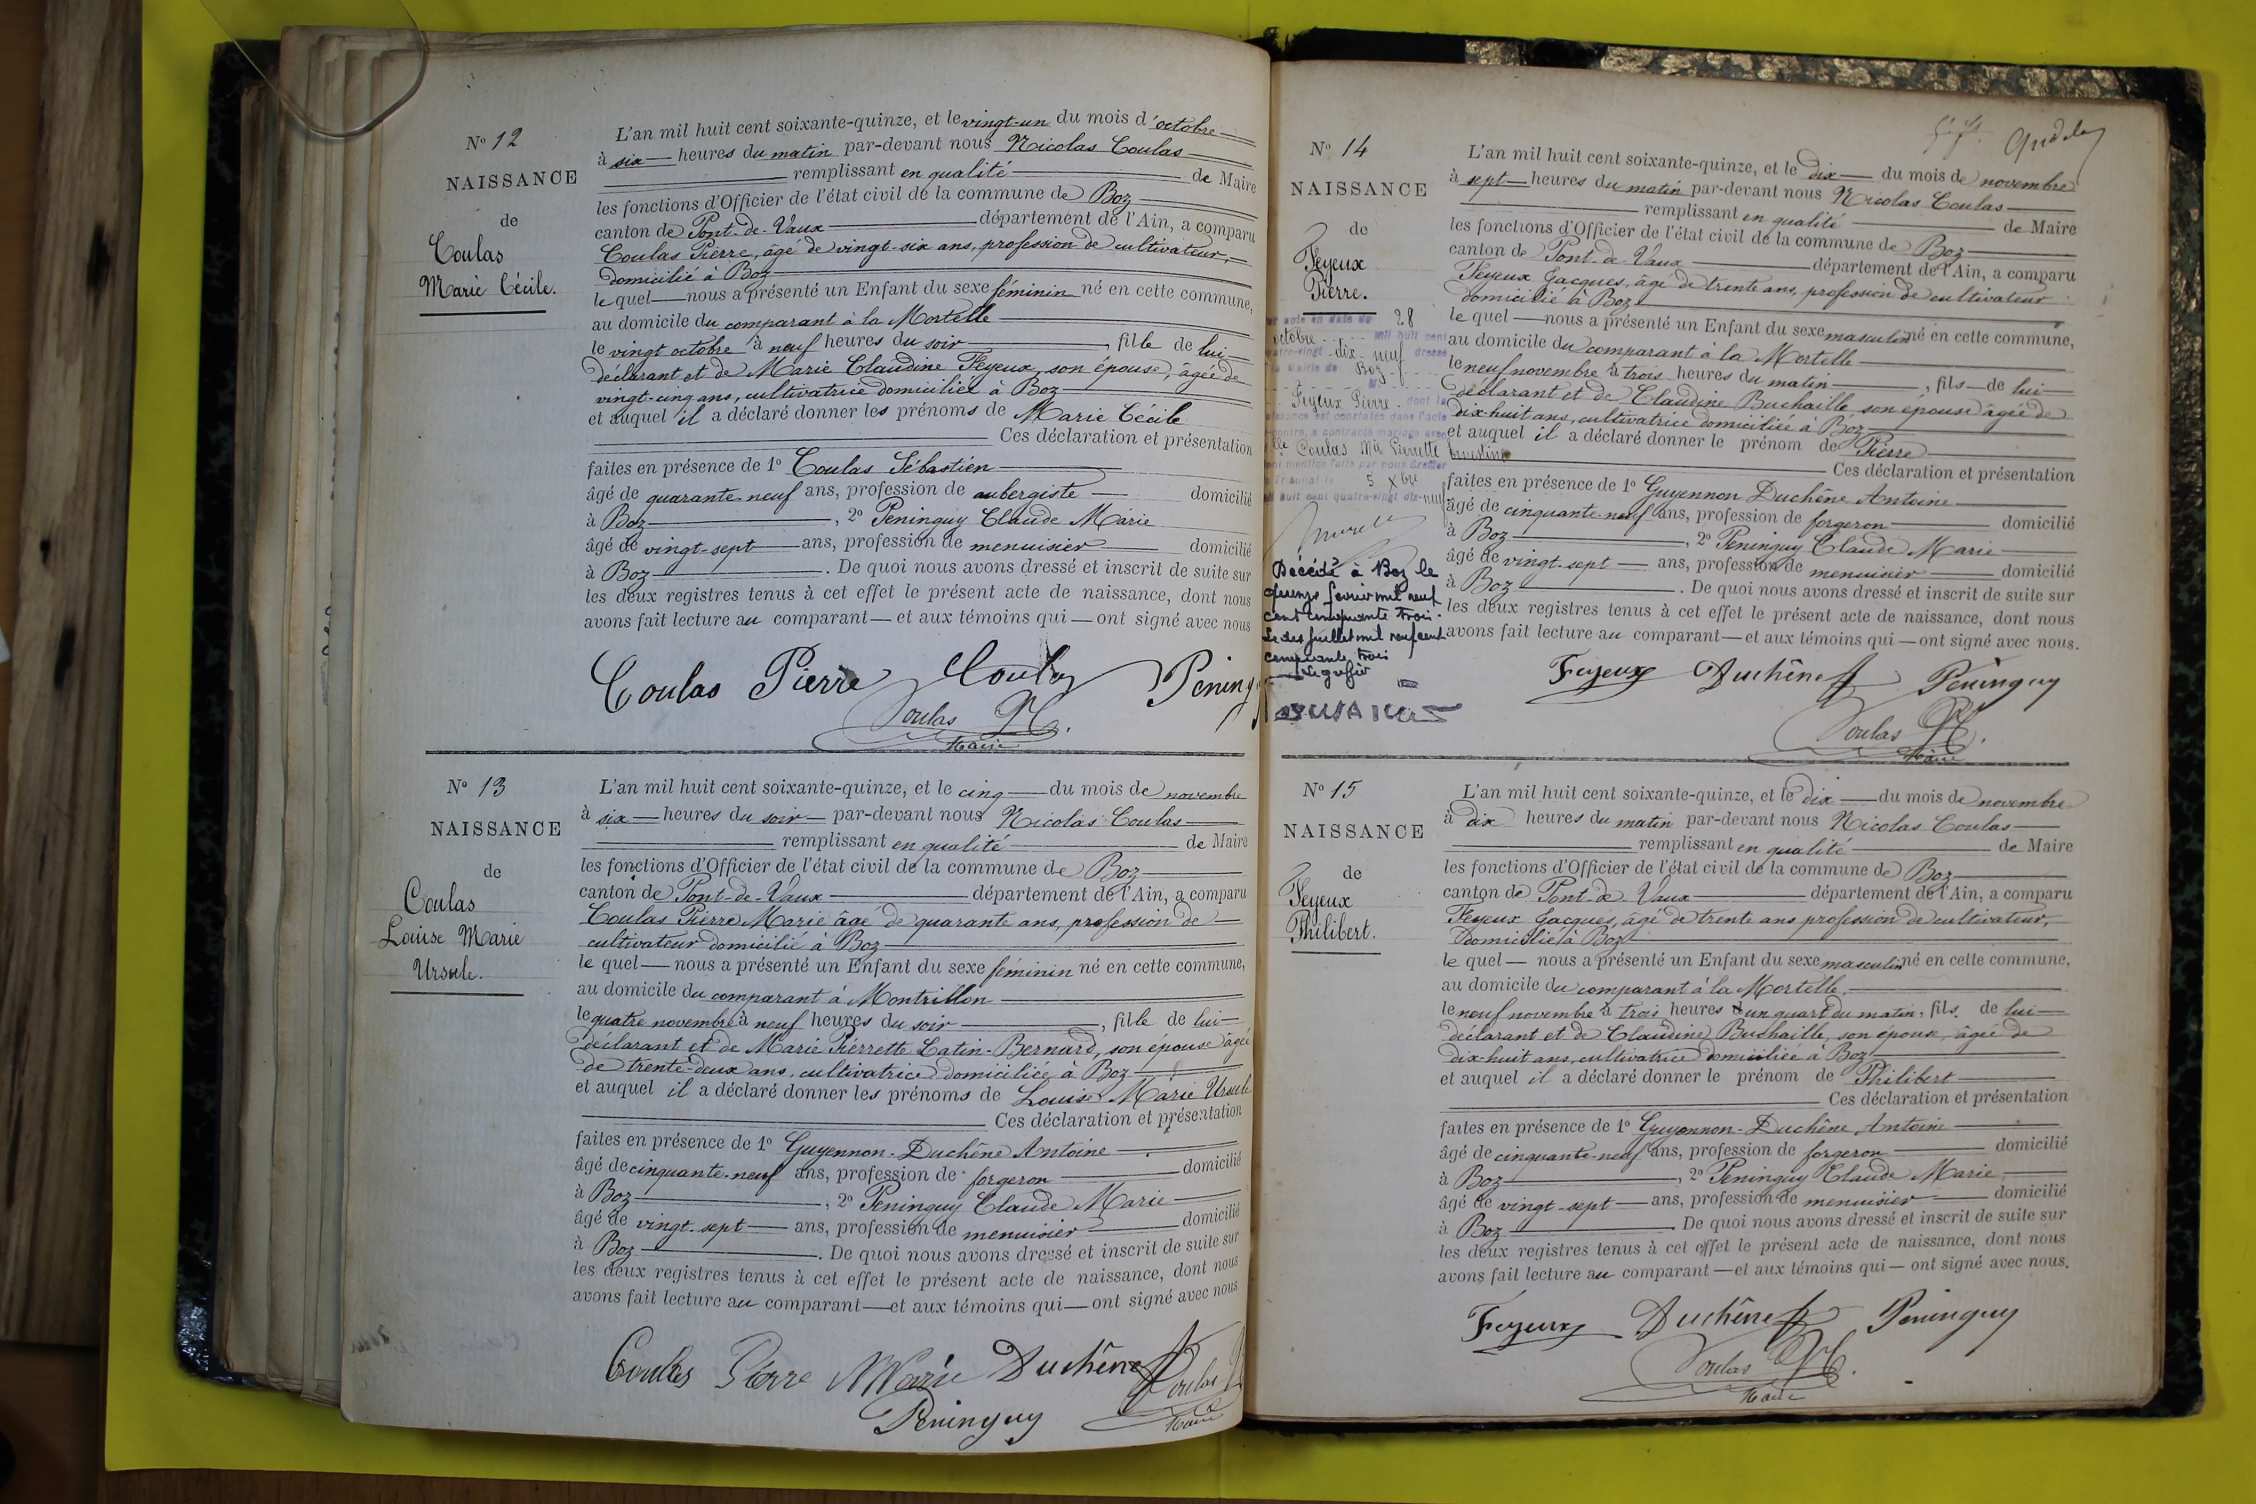 N° 12
NAISSANCE
de
Coulas
Marie Cécile.
L'an mil huit cent soixante-quinze, et le vingt-un du mois d'octobre
à six heures du matin par-devant nous Nicolas Coulas
remplissant en qualité de Maire
les fonctions d'Officier de l'état civil de la commune de Boz
canton de Pont-de-Vaux département de l'Ain, a comparu
Coulas Pierre, âgé de vingt-six ans, profession de cultivateur,
domicilié à Boz
le quel nous a présenté un Enfant du sexe féminin né en cette commune,
au domicile du comparant à la Mortelle
le vingt octobre à neuf heures du soir, fille de lui
déclarant et de Marie Claudine Feyeux, son épouse, âgée de
vingt-cinq ans, cultivatrice domiciliée à Boz
et auquel il a déclaré donner les prénoms de Marie Cécile
Ces déclaration et présentation
faites en présence de 1° Coulas Sébastien
âgé de quarante-neuf ans, profession de aubergiste domicilié
à Boz, 2° Peninguy Claude Marie
âgé de vingt-sept ans, profession de menuisier domicilié
à Boz. De quoi nous avons dressé et inscrit de suite sur
les deux registres tenus à cet effet le présent acte de naissance, dont nous
avons fait lecture au comparant et aux témoins qui ont signé avec nous
Coulas Pierre Coulas Pening
Coulas N.
Maire
N° 13
NAISSANCE
de
Coulas
Louise Marie
Ursule.
L'an mil huit cent soixante-quinze, et le cinq du mois de novembre
à six heures du soir par-devant nous Nicolas Coulas
remplissant en qualité de Maire
les fonctions d'Officier de l'état civil de la commune de Boz
canton de Pont-de-Vaux département de l'Ain, a comparu
Coulas Pierre Marie âgé de quarante ans, profession de
cultivateur domicilié à Boz
le quel nous a présenté un Enfant du sexe féminin né en cette commune,
au domicile du comparant à Montrillon
le quatre novembre à neuf heures du soir, fille de lui
déclarant et de Marie Pierrette Catin-Bernard, son épouse âgée
de trente-deux ans, cultivatrice domiciliée à Boz
et auquel il a déclaré donner les prénoms de Louise Marie Ursule
Ces déclaration et présentation
faites en présence de 1° Guyennon-Duchêne Antoine
âgé de cinquante-neuf ans, profession de forgeron domicilié
à Boz, 2° Peninguy Claude Marie
âgé de vingt-sept ans, profession de menuisier domicilié
à Boz. De quoi nous avons dressé et inscrit de suite sur
les deux registres tenus à cet effet le présent acte de naissance, dont nous
avons fait lecture au comparant et aux témoins qui ont signé avec nous
Coulas Pierre Marie Duchêne Coulas
Peninguy Maire
N° 14
NAISSANCE
de
Feyeux
Pierre.
acte en date du 28
octobre mil huit cent
quatre-vingt-dix-neuf dressé
Mairie de Boz
Feyeux Pierre dont la
naissance est constatée dans l'acte
contre, a contracté mariage avec
Coulas Mie Pierrette Ernestine
mention faite par nous Greffier
5 Xbre
mil huit cent quatre-vingt dix-neuf
Décédé à Boz le
quinze février mil neuf
cent cinquante trois.
Le dix juillet mil neuf cent
cinquante trois
Le greffier
L'an mil huit cent soixante-quinze, et le dix du mois de novembre
à sept heures du matin par-devant nous Nicolas Coulas
remplissant en qualité de Maire
les fonctions d'Officier de l'état civil de la commune de Boz
canton de Pont-de-Vaux département de l'Ain, a comparu
Feyeux Jacques, âgé de trente ans, profession de cultivateur
domicilié à Boz
le quel nous a présenté un Enfant du sexe masculin né en cette commune,
au domicile du comparant à la Mortelle
le neuf novembre à trois heures du matin, fils de lui
déclarant et de Claudine Buchaille, son épouse âgée de
dix-huit ans, cultivatrice domiciliée à Boz
et auquel il a déclaré donner le prénom de Pierre
Ces déclaration et présentation
faites en présence de 1° Guyennon Duchêne Antoine
âgé de cinquante-neuf ans, profession de forgeron domicilié
à Boz, 2° Peninguy Claude Marie
âgé de vingt-sept ans, profession de menuisier domicilié
à Boz. De quoi nous avons dressé et inscrit de suite sur
les deux registres tenus à cet effet le présent acte de naissance, dont nous
avons fait lecture au comparant et aux témoins qui ont signé avec nous.
Feyeux Duchêne Peninguy
Coulas N.
Maire
N° 15
NAISSANCE
de
Feyeux
Philibert.
L'an mil huit cent soixante-quinze, et le dix du mois de novembre
à dix heures du matin par-devant nous Nicolas Coulas
remplissant en qualité de Maire
les fonctions d'Officier de l'état civil de la commune de Boz
canton de Pont-de-Vaux département de l'Ain, a comparu
Feyeux Jacques, âgé de trente ans profession de cultivateur,
domicilié à Boz
le quel nous a présenté un Enfant du sexe masculin né en cette commune,
au domicile du comparant à la Mortelle.
le neuf novembre à trois heures & un quart du matin, fils de lui
déclarant et de Claudine Buchaille, son épouse, âgée de
dix-huit ans, cultivatrice domiciliée à Boz
et auquel il a déclaré donner le prénom de Philibert
Ces déclaration et présentation
faites en présence de 1° Guyennon-Duchêne Antoine
âgé de cinquante-neuf ans, profession de forgeron domicilié
à Boz, 2° Peninguy Claude Marie
âgé de vingt-sept ans, profession de menuisier domicilié
à Boz. De quoi nous avons dressé et inscrit de suite sur
les deux registres tenus à cet effet le présent acte de naissance, dont nous
avons fait lecture au comparant et aux témoins qui ont signé avec nous.
Feyeux Duchêne Peninguy
Coulas N.
Maire